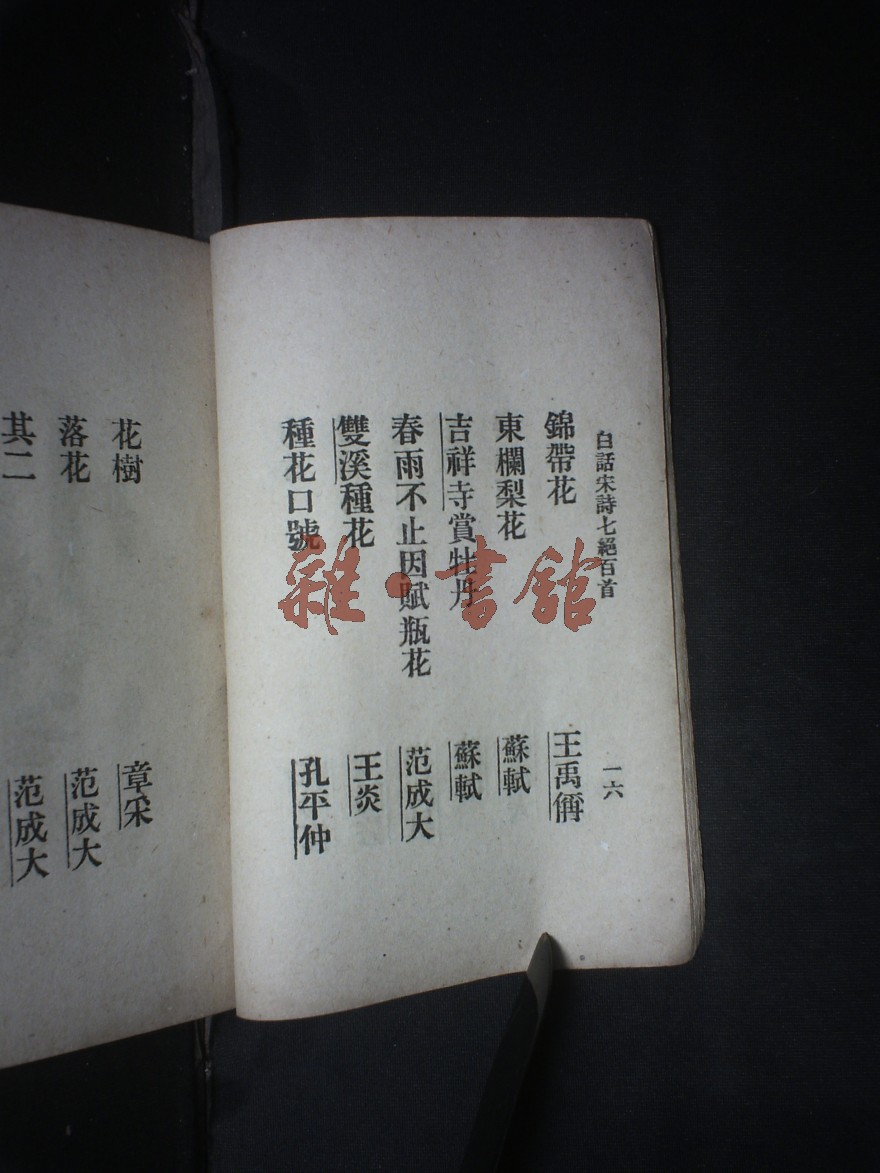 白話宋詩七絕百首
一六
錦帶花
王禹偁
東欄梨花
蘇軾
吉祥寺賞牡丹
蘇軾
春雨不止因賦瓶花
范成大
雙溪種花
王炎
種花口號
孔平仲
花樹
章采
落花
范成大
其二
范成大
雜·書館